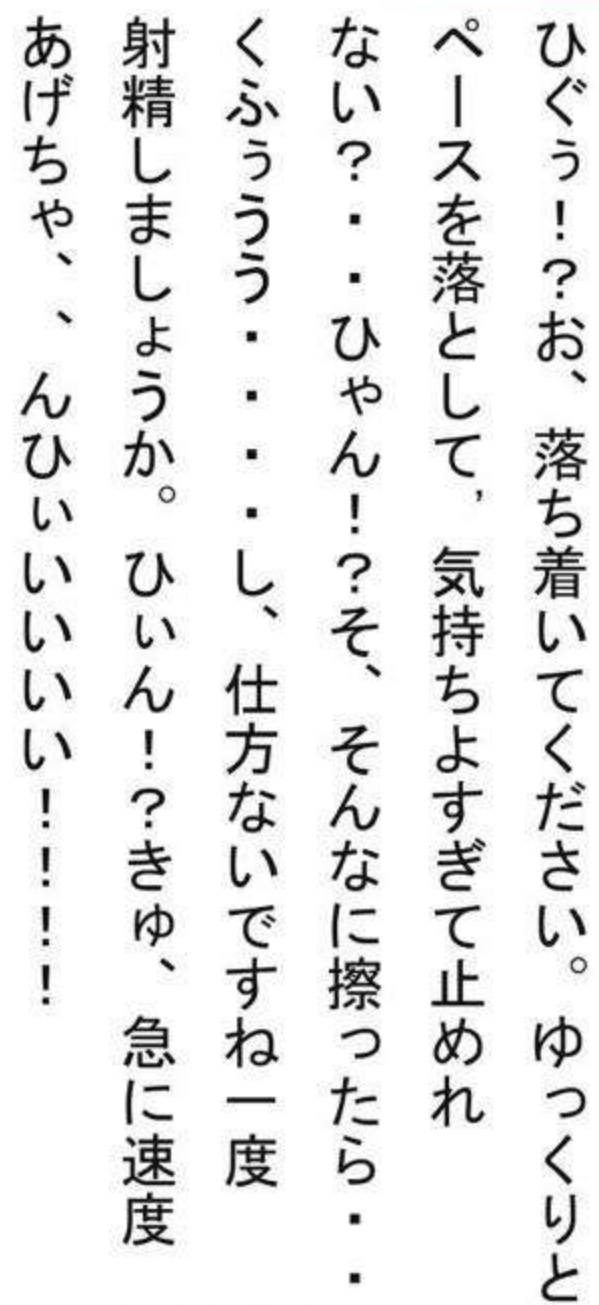 ひぐぅ！？お、落ち着いてください。ゆっくりと
ペースを落として，気持ちよすぎて止めれ
ない？・・ひゃん！？そ、そんなに擦ったら・・
くふぅうう・・・・し、仕方ないですね一度
射精しましょうか。ひぃん！？きゅ、急に速度
あげちゃ、、んひぃいいいい！！！！